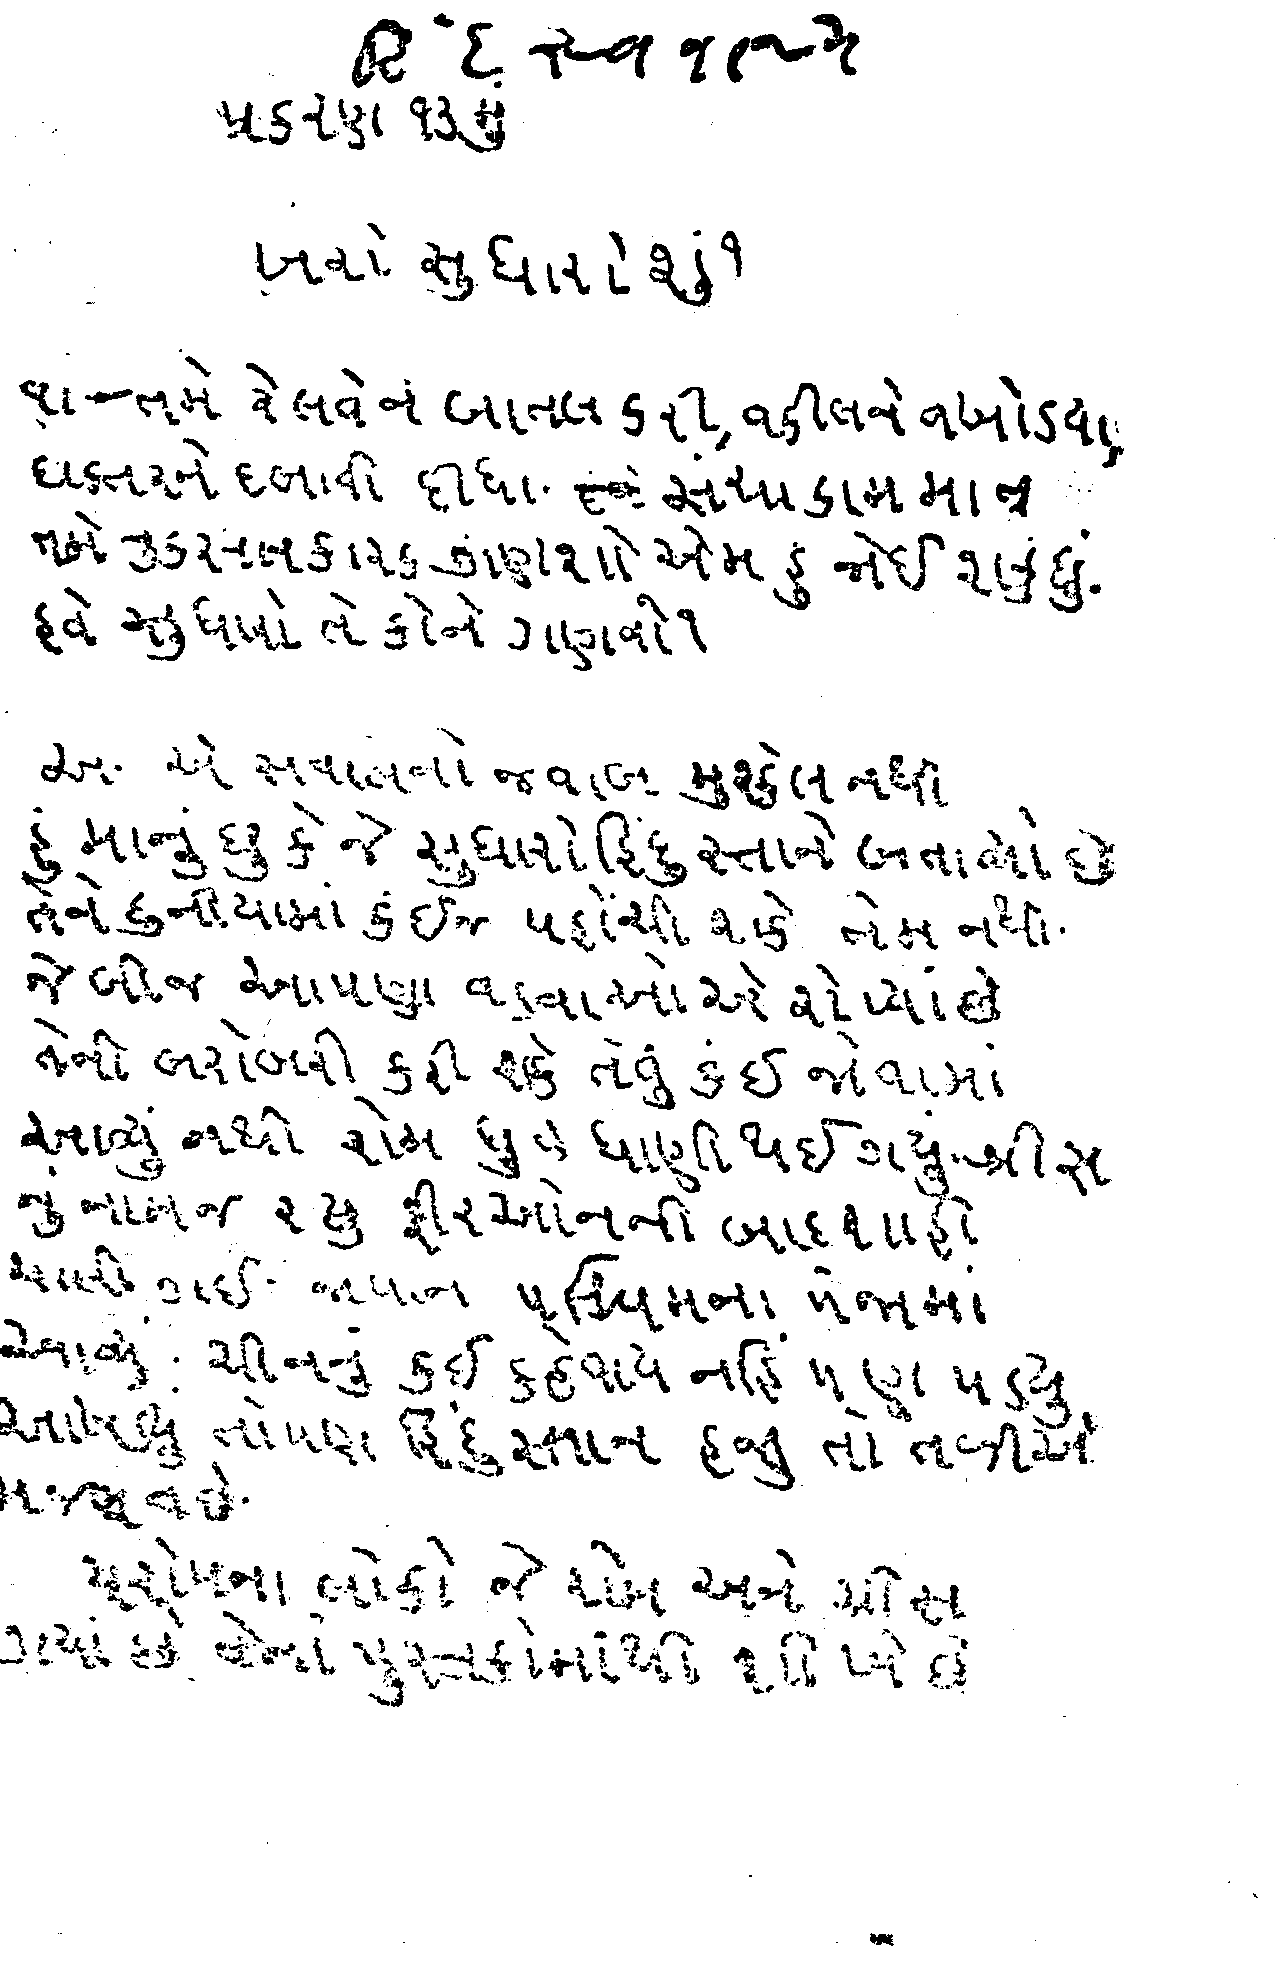 હિંદ સ્વરાજ્ય
પ્રકરણ ૧૩ મું
ખરો સુધારો શું?
વા — તમે રેલવેને બાતલ કરી, વકીલને વખોડયા,
દાકતરને દબાવી દીધા. સંચાકામ માત્ર
તમે નુકસાનકારક ગણશો એમ હું જોઈ શકું છું.
હવે સુધારો તે કોને ગણવો?
અ. એ સવાલનો જવાબ મુશ્કેલ નથી
હું માનું છું કે જે સુધારો હિંદુસ્તાને બતાવ્યો છે
તેને દુનીયામાં કંઈજ પહોંચી શકે તેમ નથી.
જે બીજ આપણા વડવાઓએ રોપ્યાં છે
તેની બરોબરી કરી શકે તેવું કંઈ જોવામાં
આવ્યું નથી રોમ ધુળ ધાણી થઈ ગયું. ગ્રીસ
નું નામજ રહ્યુ ફીરઓનની બાદશાહી
ચાલી ગઈ. જાપાન પશ્ચિમના પંજામાં
આવ્યું. ચીનનું કંઈ કહેવાય નહિ પણ પડયુ
આખડ્યુ તોપણ હિંદુસ્તાન હજુ તો તળીએ
મજબુત છે.
યુરોપના લોકો જે રોમ અને ગ્રીસ
ગયાં છે તેનાં પુસ્તકોમાંથી શીખે છે